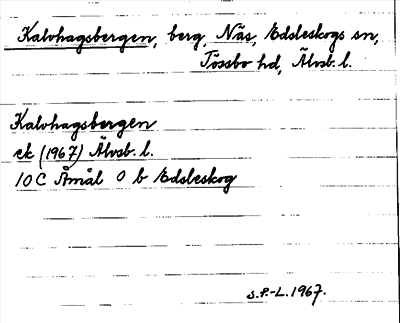 Kalvhagsbergen, berg, Näs, Edsleskogs sn,
Tössbo hd, Älvsb. l.
Kalvhagsbergen
ek (1967) Älvsb. l.
10 C Åmål O b Edsleskog
S.P.-L. 1967.